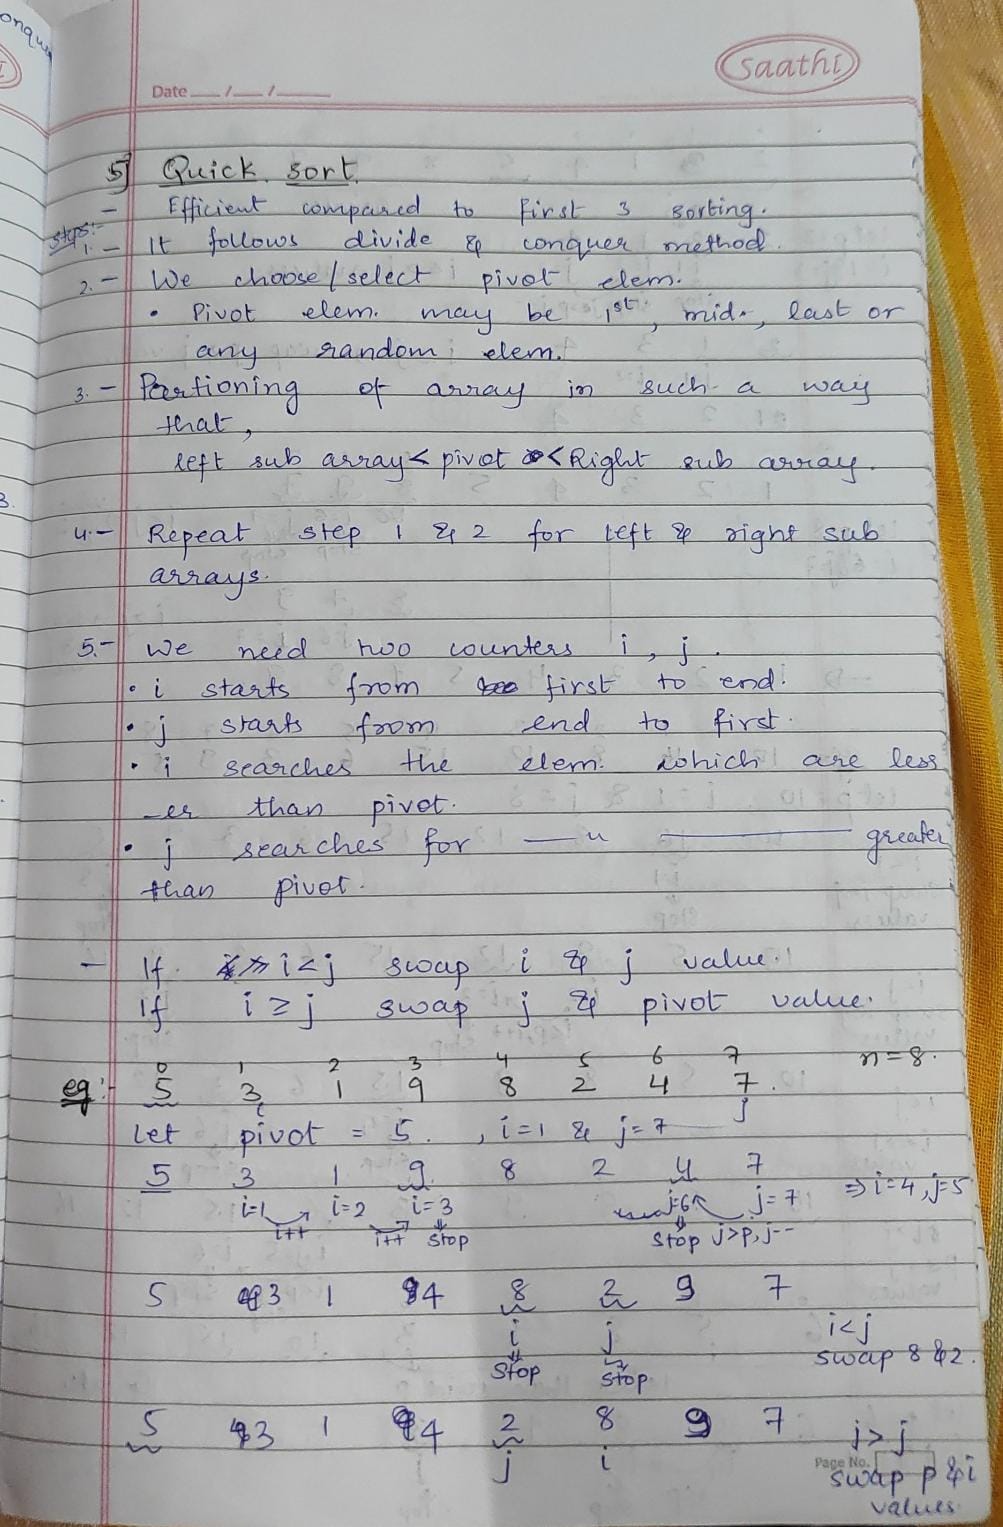 onque
Saathi
Date __/__/____
5] Quick sort.
- Efficient compared to first 3 sorting.
steps:-
1. - It follows divide & conquer method.
2. - We choose/select pivot elem.
• Pivot elem. may be 1st, mid., last or
any random elem.
3. - Partioning of array in such a way
that,
left sub array < pivot < Right sub array.
3.
4. - Repeat step 1 & 2 for left & right sub
arrays.
5. - We need two counters i, j.
• i starts from first to end.
• j starts from end to first.
• i searches the elem. which are less
-er than pivot.
• j searches for —— " —————— greater
than pivot.
- If i<j swap i & j value.
If i ≥ j swap j & pivot value.
0 1 2 3 4 5 6 7 n=8.
eg:- 5 3 1 9 8 2 4 7.
i j
Let pivot = 5. , i=1 & j=7
5 3 1 9 8 2 4 7 ⇒ i=4, j=5
i=1 i=2 i=3 j=6 j=7
i++ i++ stop stop j>p, j--
5 3 1 4 8 2 9 7
i j i<j
stop stop swap 8 & 2.
5 3 1 4 2 8 9 7
j i j > j
Page No.
swap p & i
values.